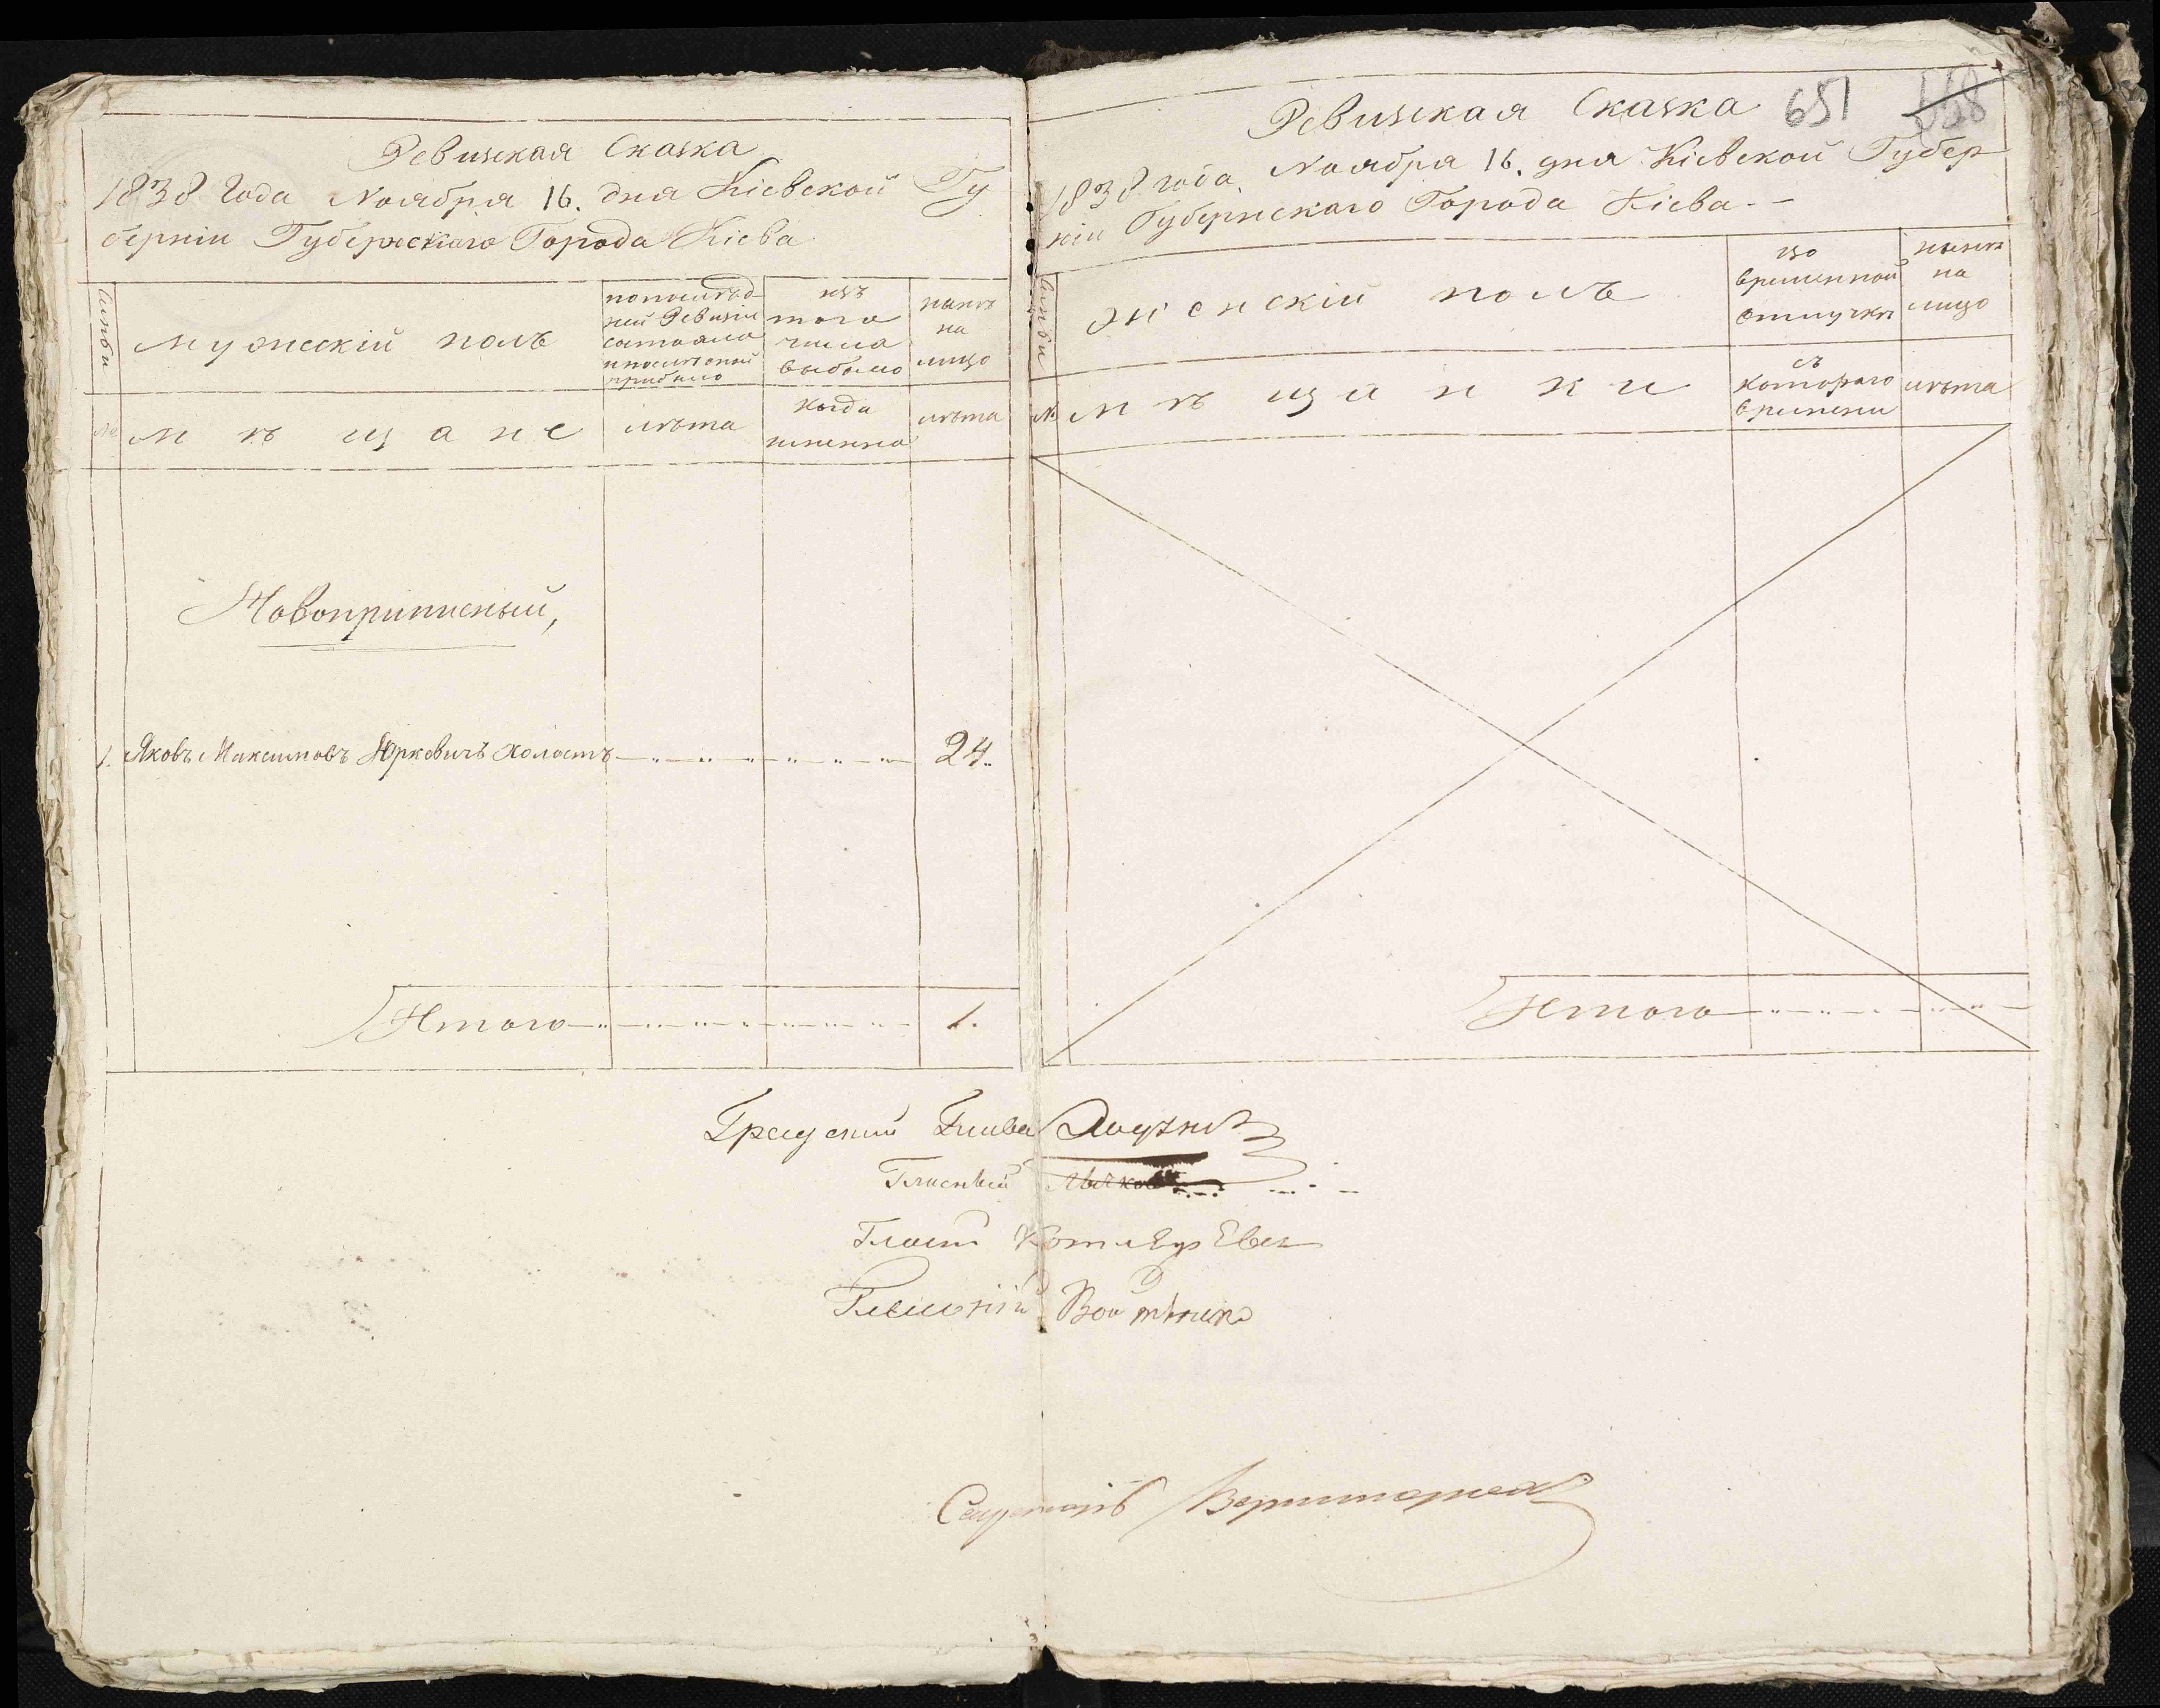 Ревизская Сказка
1838 Года Ноября 16. дня Кіевской Гу
берніи Губернскаго Города Кіева
Семьи
мужескій полъ
по послѣд-
ней Ревизіи
состояло
и послѣ оной
прибыло
изъ
того
числа
выбыло
нынѣ
на
лицо
№
мѣщане
лѣта
когда
именно
лѣта
Новоприписный,
1. Яковъ Максимовъ Юркевичъ холостъ 24.
Итого 1.
651 558
Ревизская Сказка
1838 года, Ноября 16. дня Кіевской Губер
ніи Губернскаго Города Кіева.-
Семьи
женскій полъ
во
временной
отлучкѣ
нынѣ
на
лицо
№
мѣщанки
съ
котораго
времени
лѣта
Итого
Градскій Глава
Гласный
Гласн Котляревъ
Гласный Войтенко
Секретарь